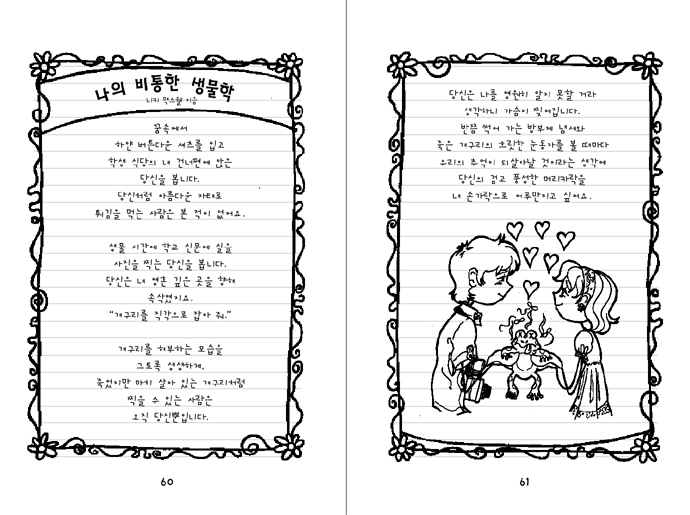 나의 비통한 생물학
니키 맥스웰 지음
꿈속에서
하얀 버튼다운 셔츠를 입고
학생 식당의 내 건너편에 앉은
당신을 봅니다.
당신처럼 아름다운 자태로
튀김을 먹는 사람은 본 적이 없어요.
생물 시간에 학교 신문에 실을
사진을 찍는 당신을 봅니다.
당신은 내 영혼 깊은 곳을 향해
속삭였지요.
"개구리를 직각으로 잡아 줘."
개구리를 해부하는 모습을
그토록 생생하게,
죽었지만 마치 살아 있는 개구리처럼
찍을 수 있는 사람은
오직 당신뿐입니다.
60
당신은 나를 영원히 알지 못할 거라
생각하니 가슴이 찢어집니다.
반쯤 썩어 가는 방부제 냄새와
죽은 개구리의 흐릿한 눈동자를 볼 때마다
우리의 추억이 되살아날 것이라는 생각에
당신의 검고 풍성한 머리카락을
내 손가락으로 어루만지고 싶어요.
61